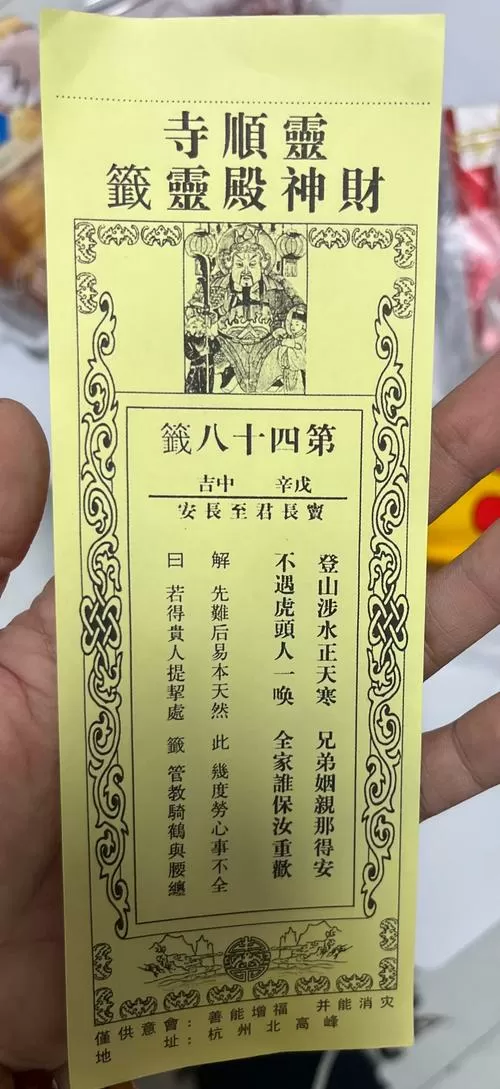 靈順寺
財神殿靈籤
第四十八籤
戊辛 中吉
竇長君至長安
登山涉水正天寒 兄弟姻親那得安
不遇虎頭人一喚 全家誰保汝重歡
解 先難后易本天然 此 幾度勞心事不全
曰 若得貴人提挈處 籤 管教騎鶴與腰纏
僅供意會：善能增福 并能消灾
地址：杭州北高峰